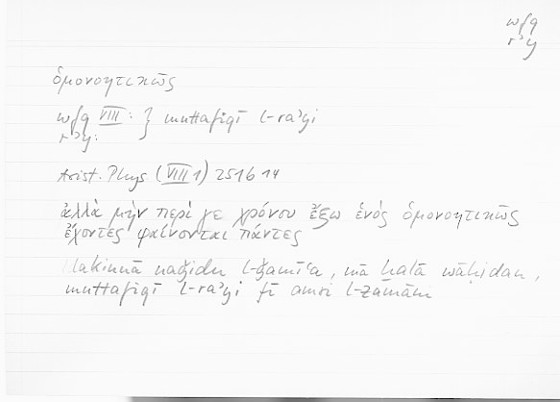 wfq
rʾy
ὁμονοητικῶς
wfq VIII: } muttafiqī l-raʾyi
rʾy:
Arist. Phys (VIII 1) 251b14
ἀλλὰ μὴν περί γε χρόνου ἔξω ἑνὸς ὁμονοητικῶς
ἔχοντες φαίνονται πάντες
lakinnā naǧidu l-ǧamīʿa, mā ḫalā wāḥidan,
muttafiqī l-raʾyi fī amri l-zamāni